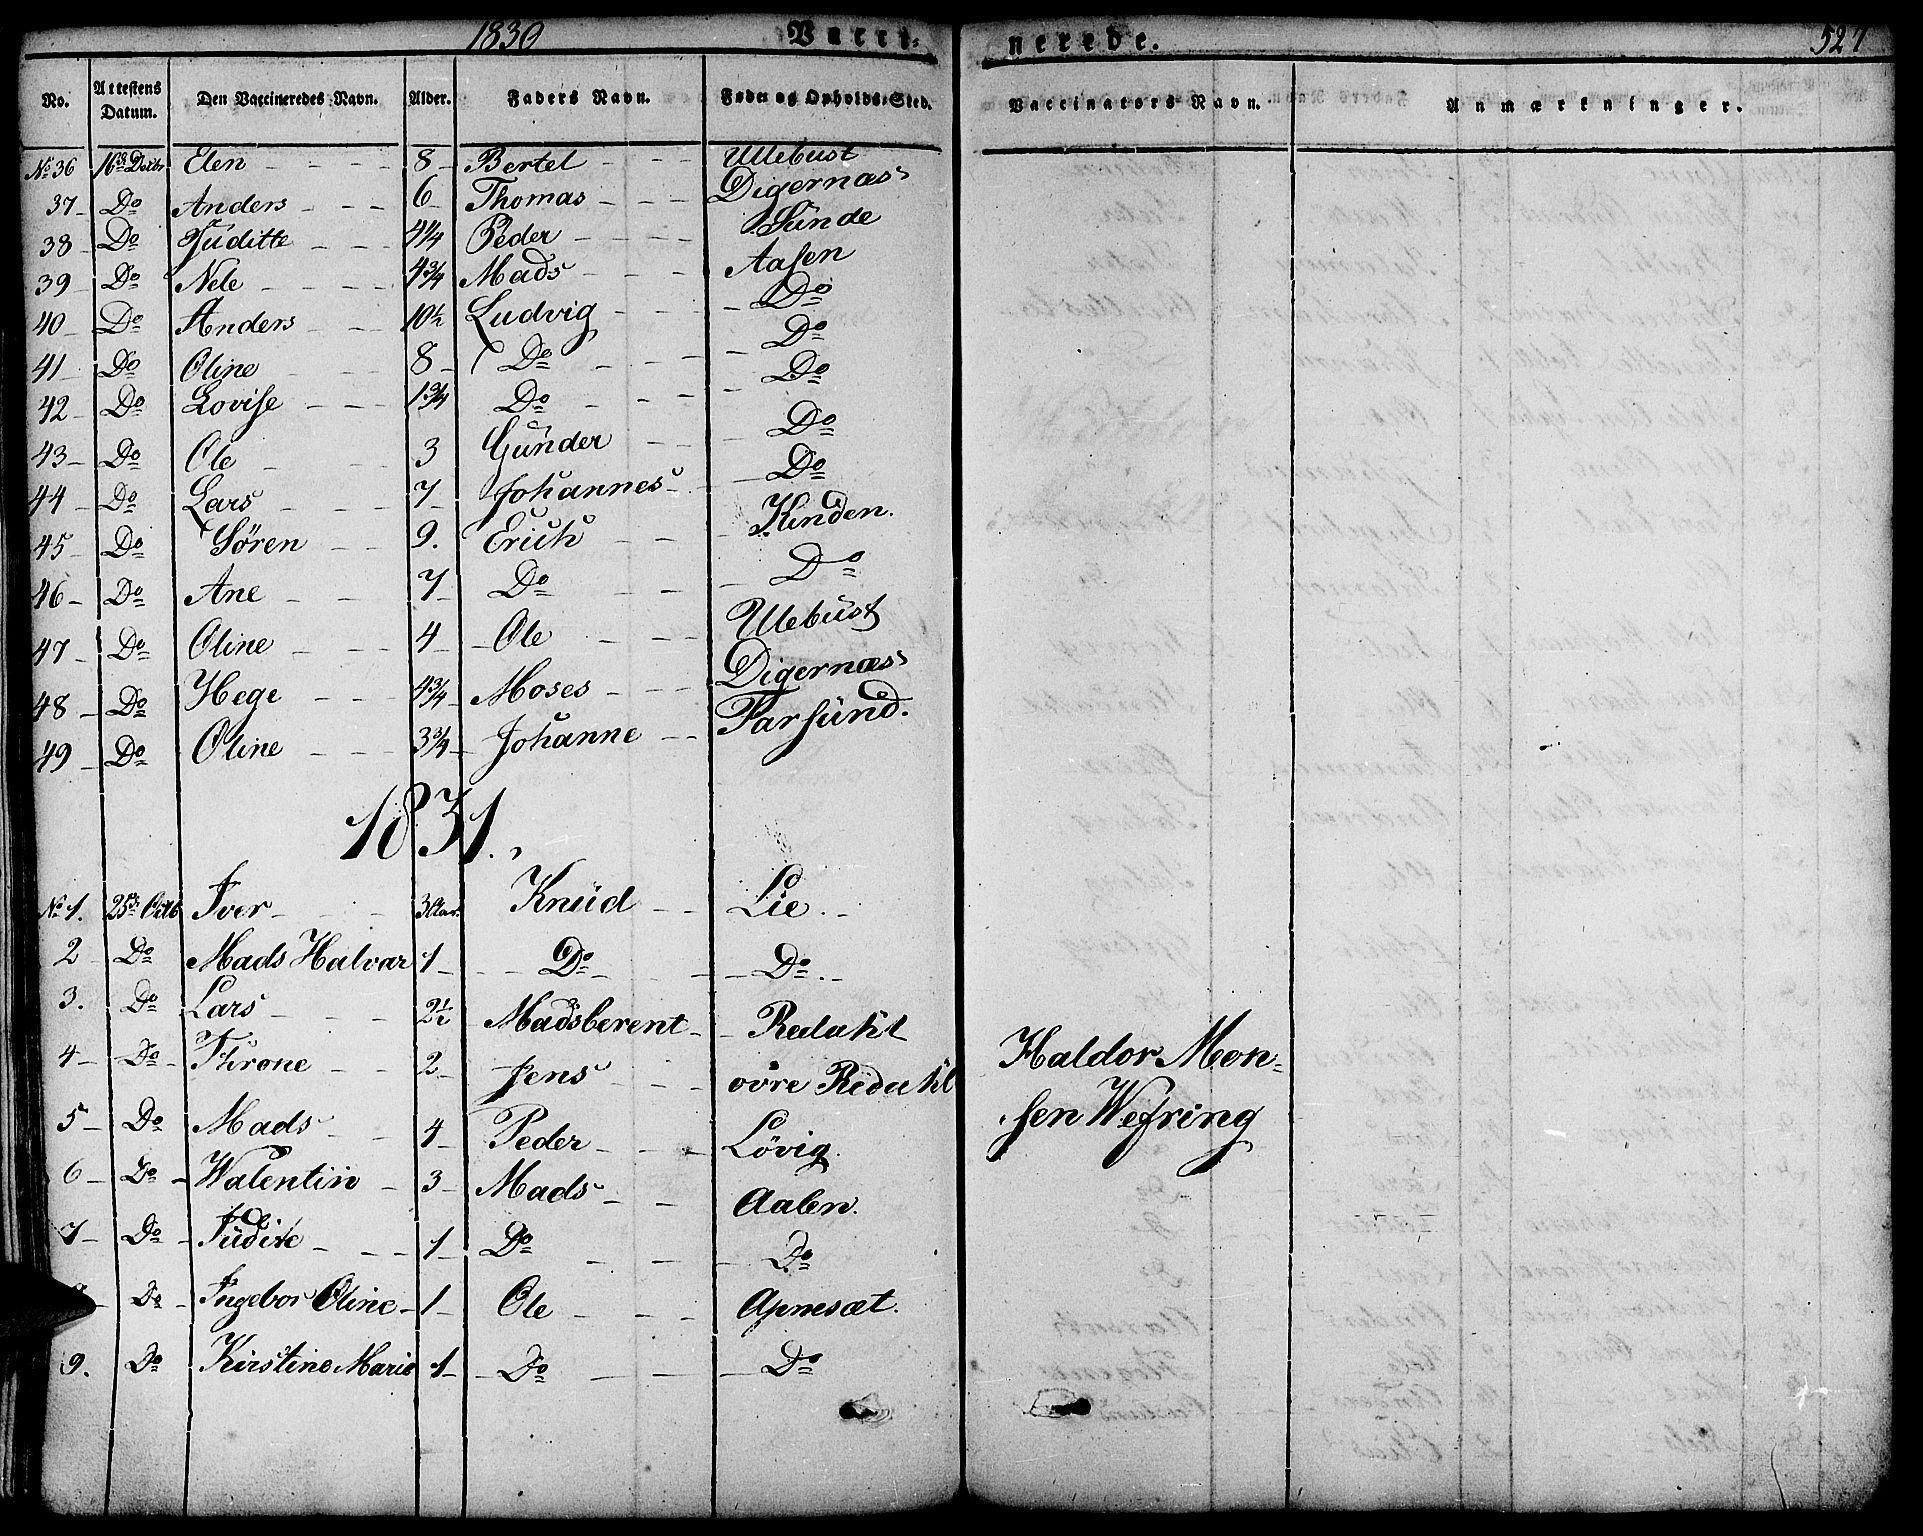 1830 Vacci- nerede. 527
No. Attestens Datum. Den Vaccineredes Navn. Alder. Faders Navn. Føde og Opholds-Sted. Vaccinators Navn. Anmærkninger.
No 36 16de Decbr Elen 8 Bertel Ullebust
37 Do Anders 6 Thomas Digernæs
38 Do Juditte 4¼ Peder Sünde
39 Do Nele 4¾ Mads Aasen
40 Do Anders 10½ Ludvig Do
41 Do Oline 8 Do Do
42 Do Lovise 1¾ Do Do
43 Do Ole 3 Günder Do
44 Do Lars 7 Johannes Do
45 Do Sören 9. Erich Kinden.
46 Do Ane 7 Do Do
47 Do Oline 4 Ole Ullebüst
48 Do Hege 4¾ Moses Digernæs
49 Do Oline 3¾ Johanne Farsünd.
1831.
No 1. 25de Octb Iver 3 Aar. Knüd Lie.
2 Do Mads Halvar 1 Do Do
3. Do Lars 2½ Madsberent Redahl
4 Do Throne 2 Jens övre Redahl Haldor Mon-
5 Do Mads 4 Peder Lövig sen Wefring
6 Do Walentin 3 Mads Aalen.
7 Do Judite 1 Do Do
Do Ingebor Oline 1 Ole Apnesæt.
9. Do Kirstine Marie 1 Do Do